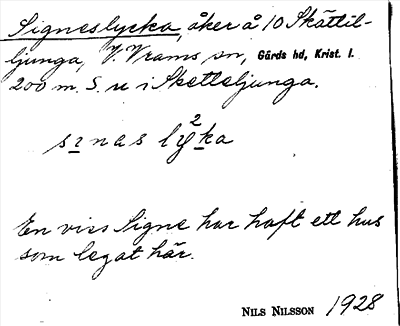 Signeslycka, åker å 10 Skättil-
ljunga, V. Vrams sn, Gärds hd, Krist. l.
200 m. S. u i Sketteljunga.
2
sɪnas lyka
En viss Signe har haft ett hus
som legat här.
NILS NILSSON 1928